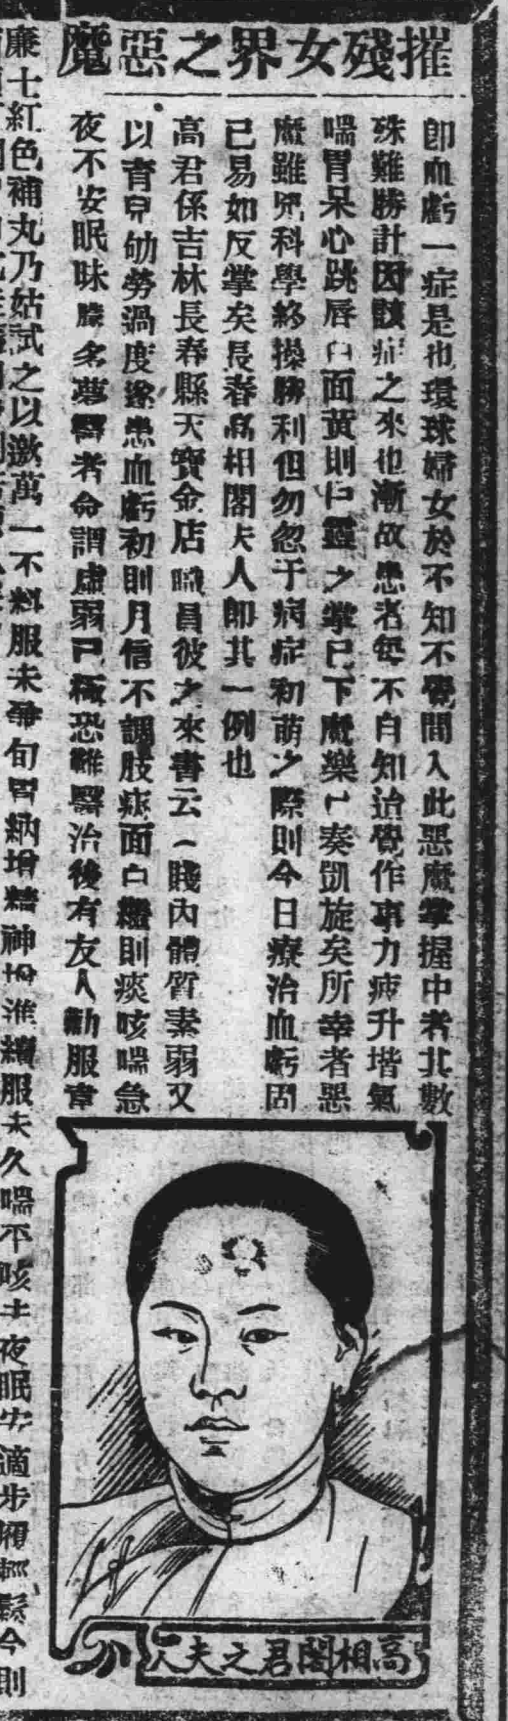 摧殘女界之惡魔
卽血虧一症是也環球婦女於不知不覺間入此惡魔掌握中者其數
殊難勝計因該症之來也漸故患者每不自知迨覺作事力疲升堦氣
喘胃呆心跳唇白面黃則已靈之掌已下魔樂已奏凱旋矣所幸者惡
魔雖兇科學終操勝利但勿忽于病症初萌之際則今日療治血虧固
已易如反掌矣長春高相閣夫人卽其一例也
高君係吉林長春縣天寶金店職員彼之來書云（賤內體質素弱又
以育兒劬勞過度遂患血虧初則月信不調肢痠面白繼則痰咳喘急
夜不安眠昧朦多夢醫者僉謂虛弱已極恐難醫治後有友人勸服韋
廉士紅色補丸乃姑試之以激萬一不料服未兼旬胃納增精神增進續服未久喘平咳止夜眠安適步履輕鬆今則
高相閣君之夫人